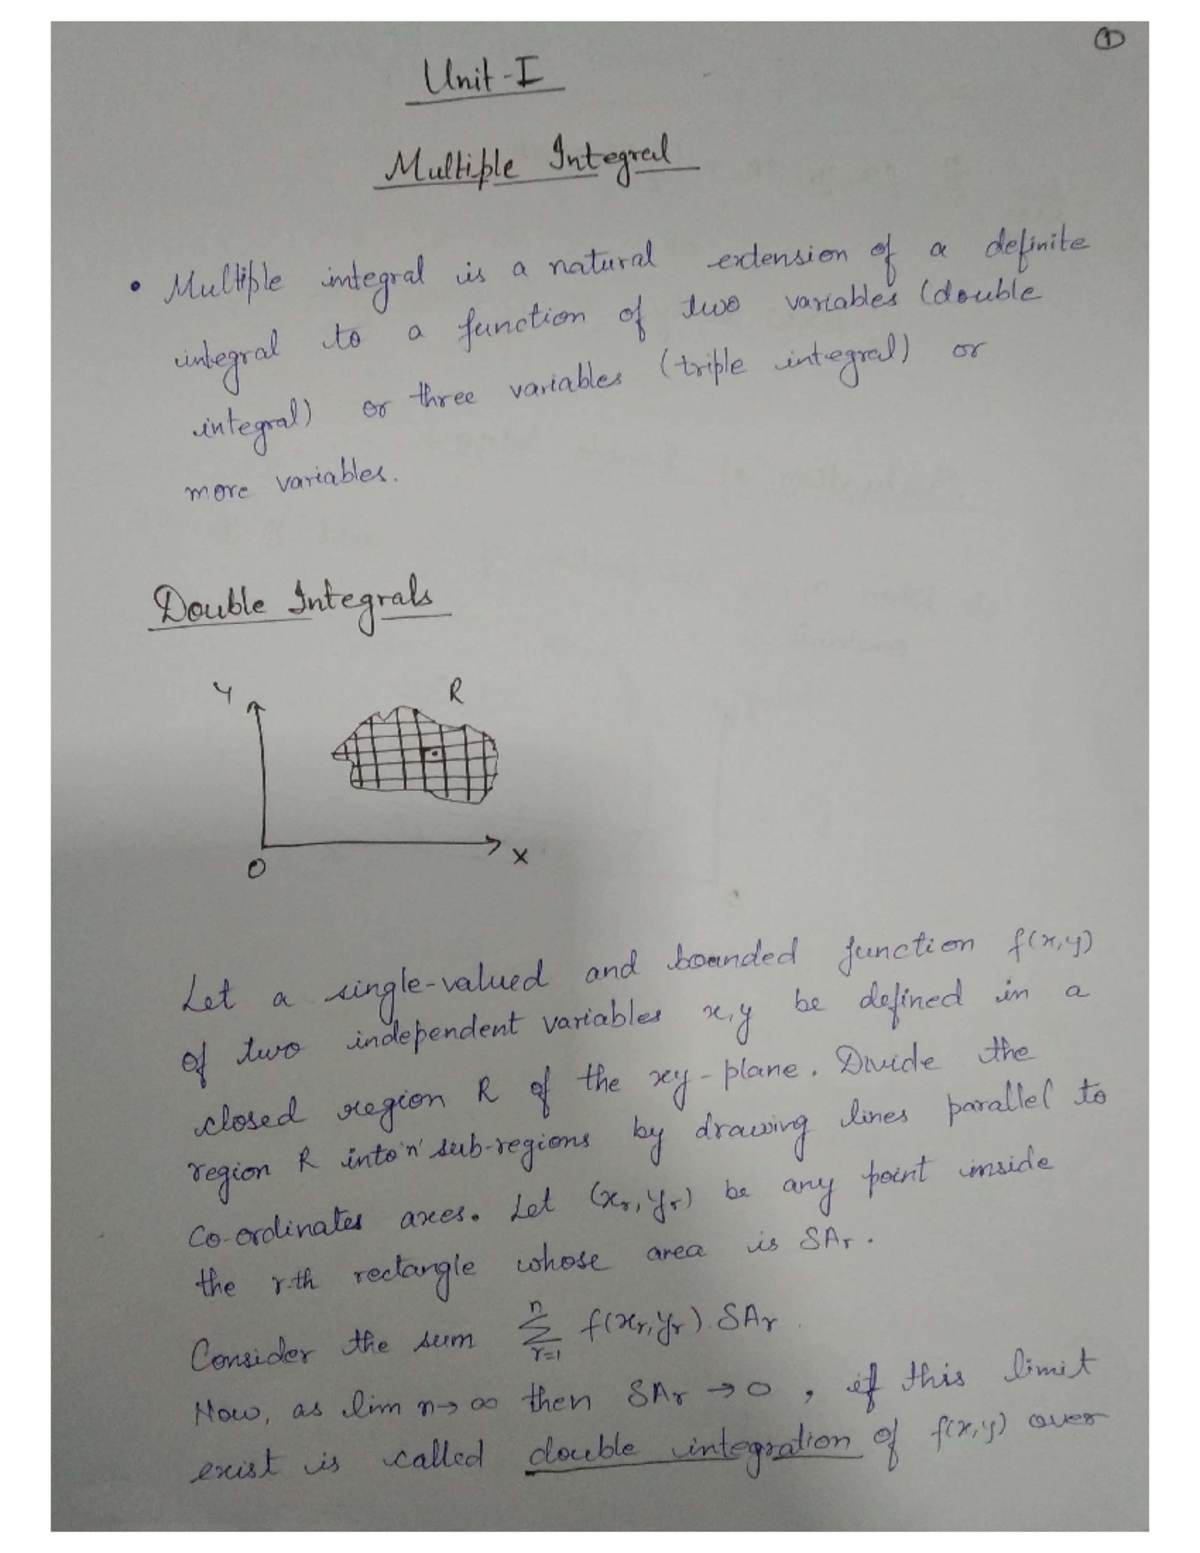 ①
Unit-I
Multiple Integral
• Multiple integral is a natural extension of a definite
integral to a function of two variables (double
integral) or three variables (triple integral) or
more variables.
Double Integrals
Y
R
O
X
Let a single-valued and bounded function f(x,y)
of two independent variables x,y be defined in a
closed region R of the xy-plane. Divide the
region R into 'n' sub-regions by drawing lines parallel to
Co-ordinates axes. Let (xr, yr) be any point inside
the r-th rectangle whose area is δAr.
Consider the sum n∑r=1 f(xr,yr) δAr.
Now, as lim n→∞ then δAr → 0, if this limit
exist is called double integration of f(x,y) over